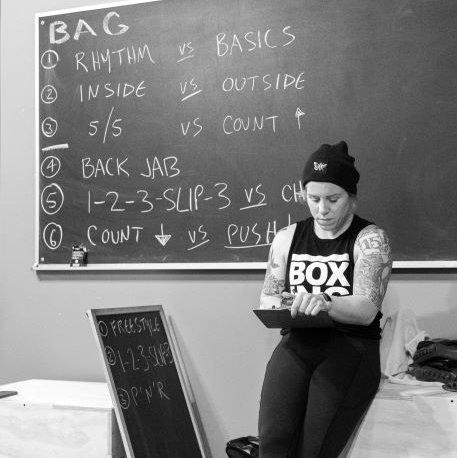 BAG
① RHYTHM vs BASICS
② INSIDE vs OUTSIDE
③ 5/5 VS COUNT ↑
④ BACK JAB
⑤ 1-2-3-SLIP-3 VS
⑥ COUNT ↓ vs PUSH
BOX
① FREESTYLE
② 1-2-3-SLIP-3
③ P'N'R